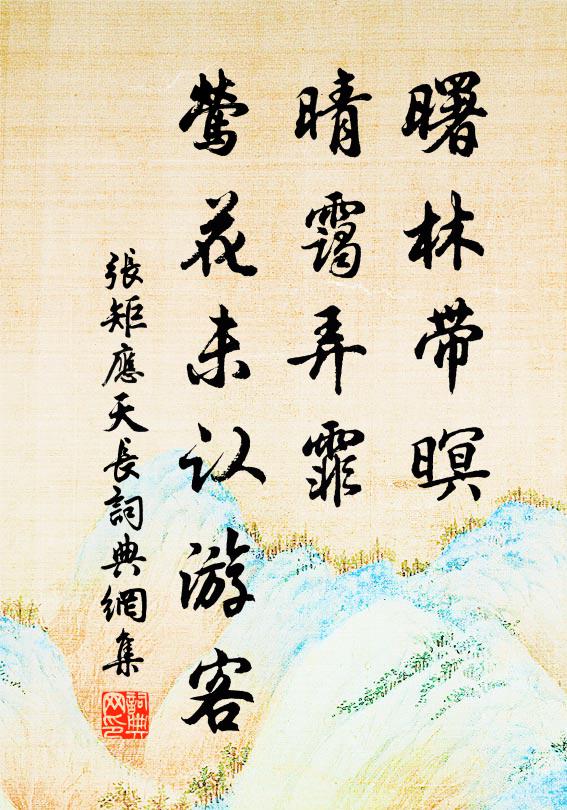 曙林带暝
晴靄弄霏
鶯花未认游客
張矩應天長詞典網集
詞典网印